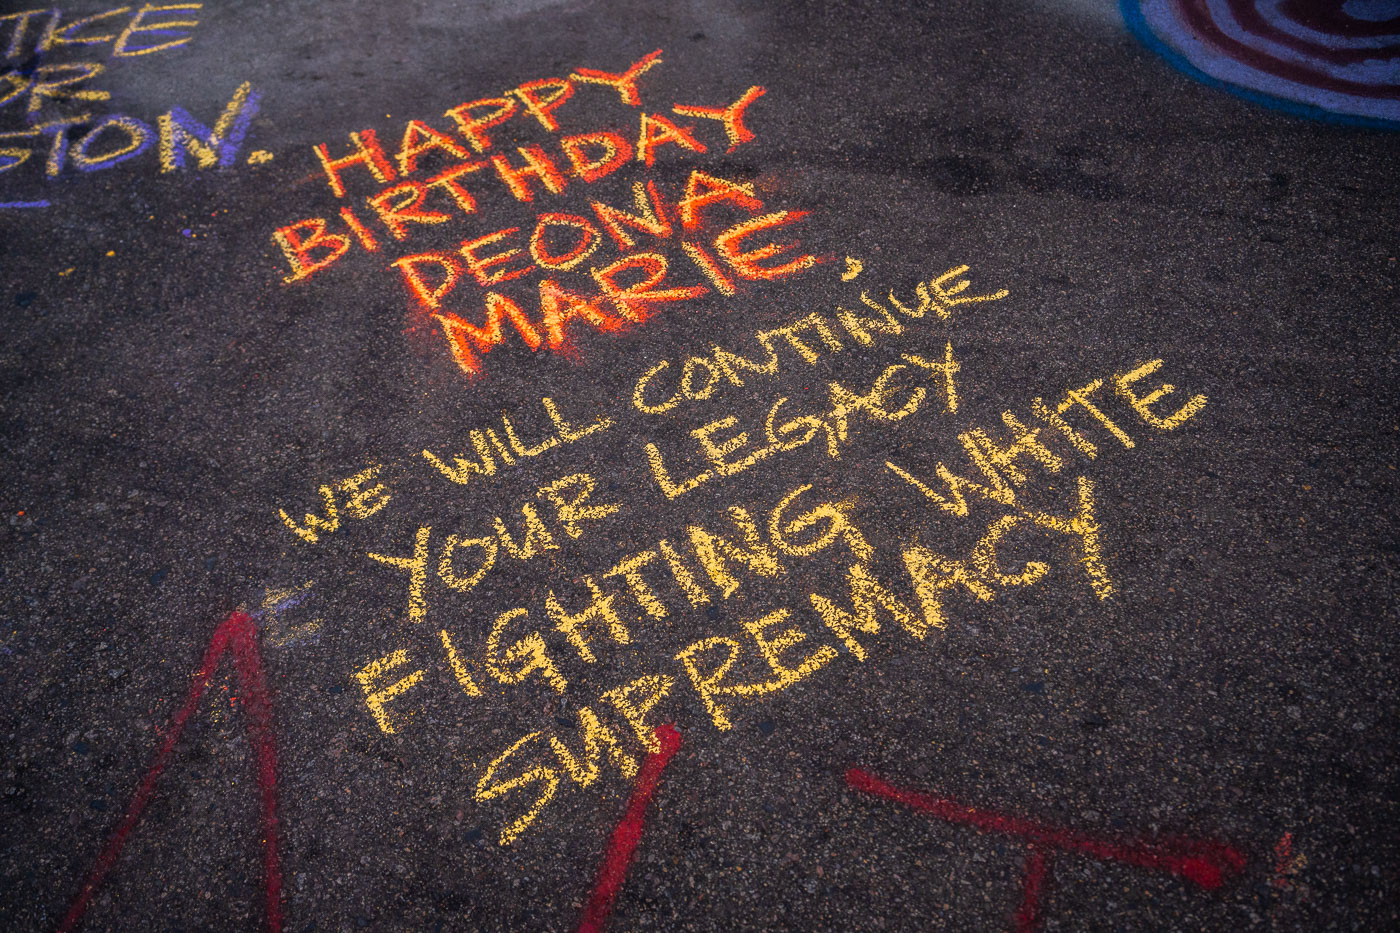 HAPPY
BIRTHDAY
DEONA
MARIE,
WE WILL CONTINUE
YOUR LEGACY
FIGHTING WHITE
SUPREMACY